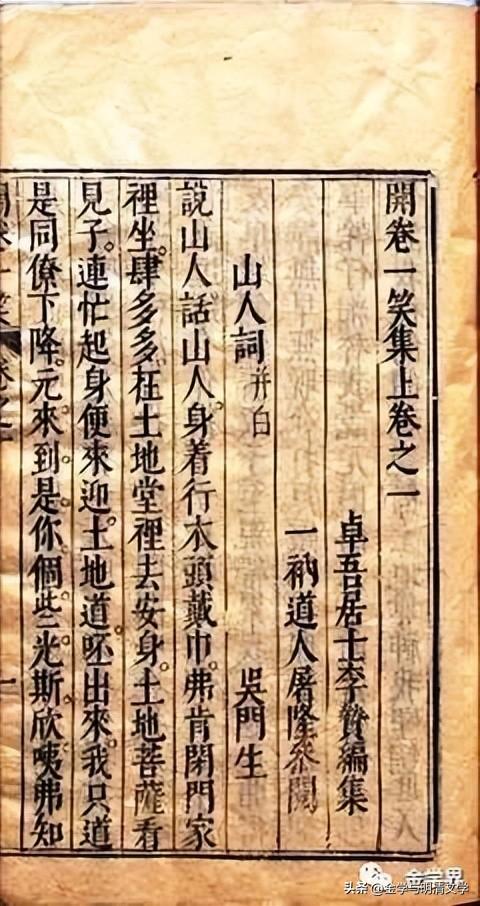 開卷一笑集上卷之一
卓吾居士李贄編集
一衲道人屠隆參閱
山人詞 并白 吳門生
說山人話山人。身着行衣頭戴巾。弗肯閉門家
裡坐。肆多多。在土地堂裡去安身。土地菩薩看
見子。連忙起身便來迎。土地道。呸出來。我只道
是同僚下降。元來到是你個些光斯欣。咦弗知
金学界
头条 @金学与明清文学